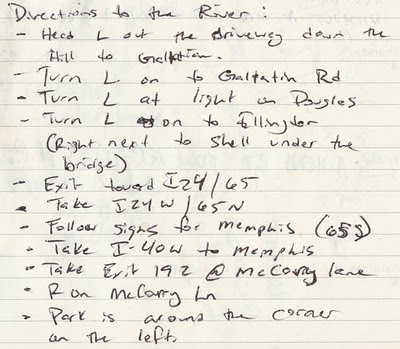 Directions to the River:
- Head L out the driveway down the
Hill to Gallatin.
- Turn L on to Gallatin Rd
- Turn L at light on Douglas
- Turn L on to Ellington
(Right next to Shell under the
bridge)
- Exit toward I24/65
- Take I24W/65N
- Follow signs for Memphis (65S)
- Take I-40W to Memphis
- Take Exit 192 @ McCorry lane
- R on McCorry Ln
- Park is around the corner
on the left.